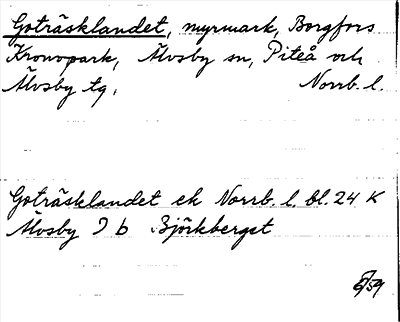 Goträsklandet, myrmark, Borgfors
Kronopark, Älvsby sn, Piteå och
Älvsby tg, Norrb. l.
Goträsklandet ek Norrb. l. bl. 24 K
Älvsby 9 b Björkberget